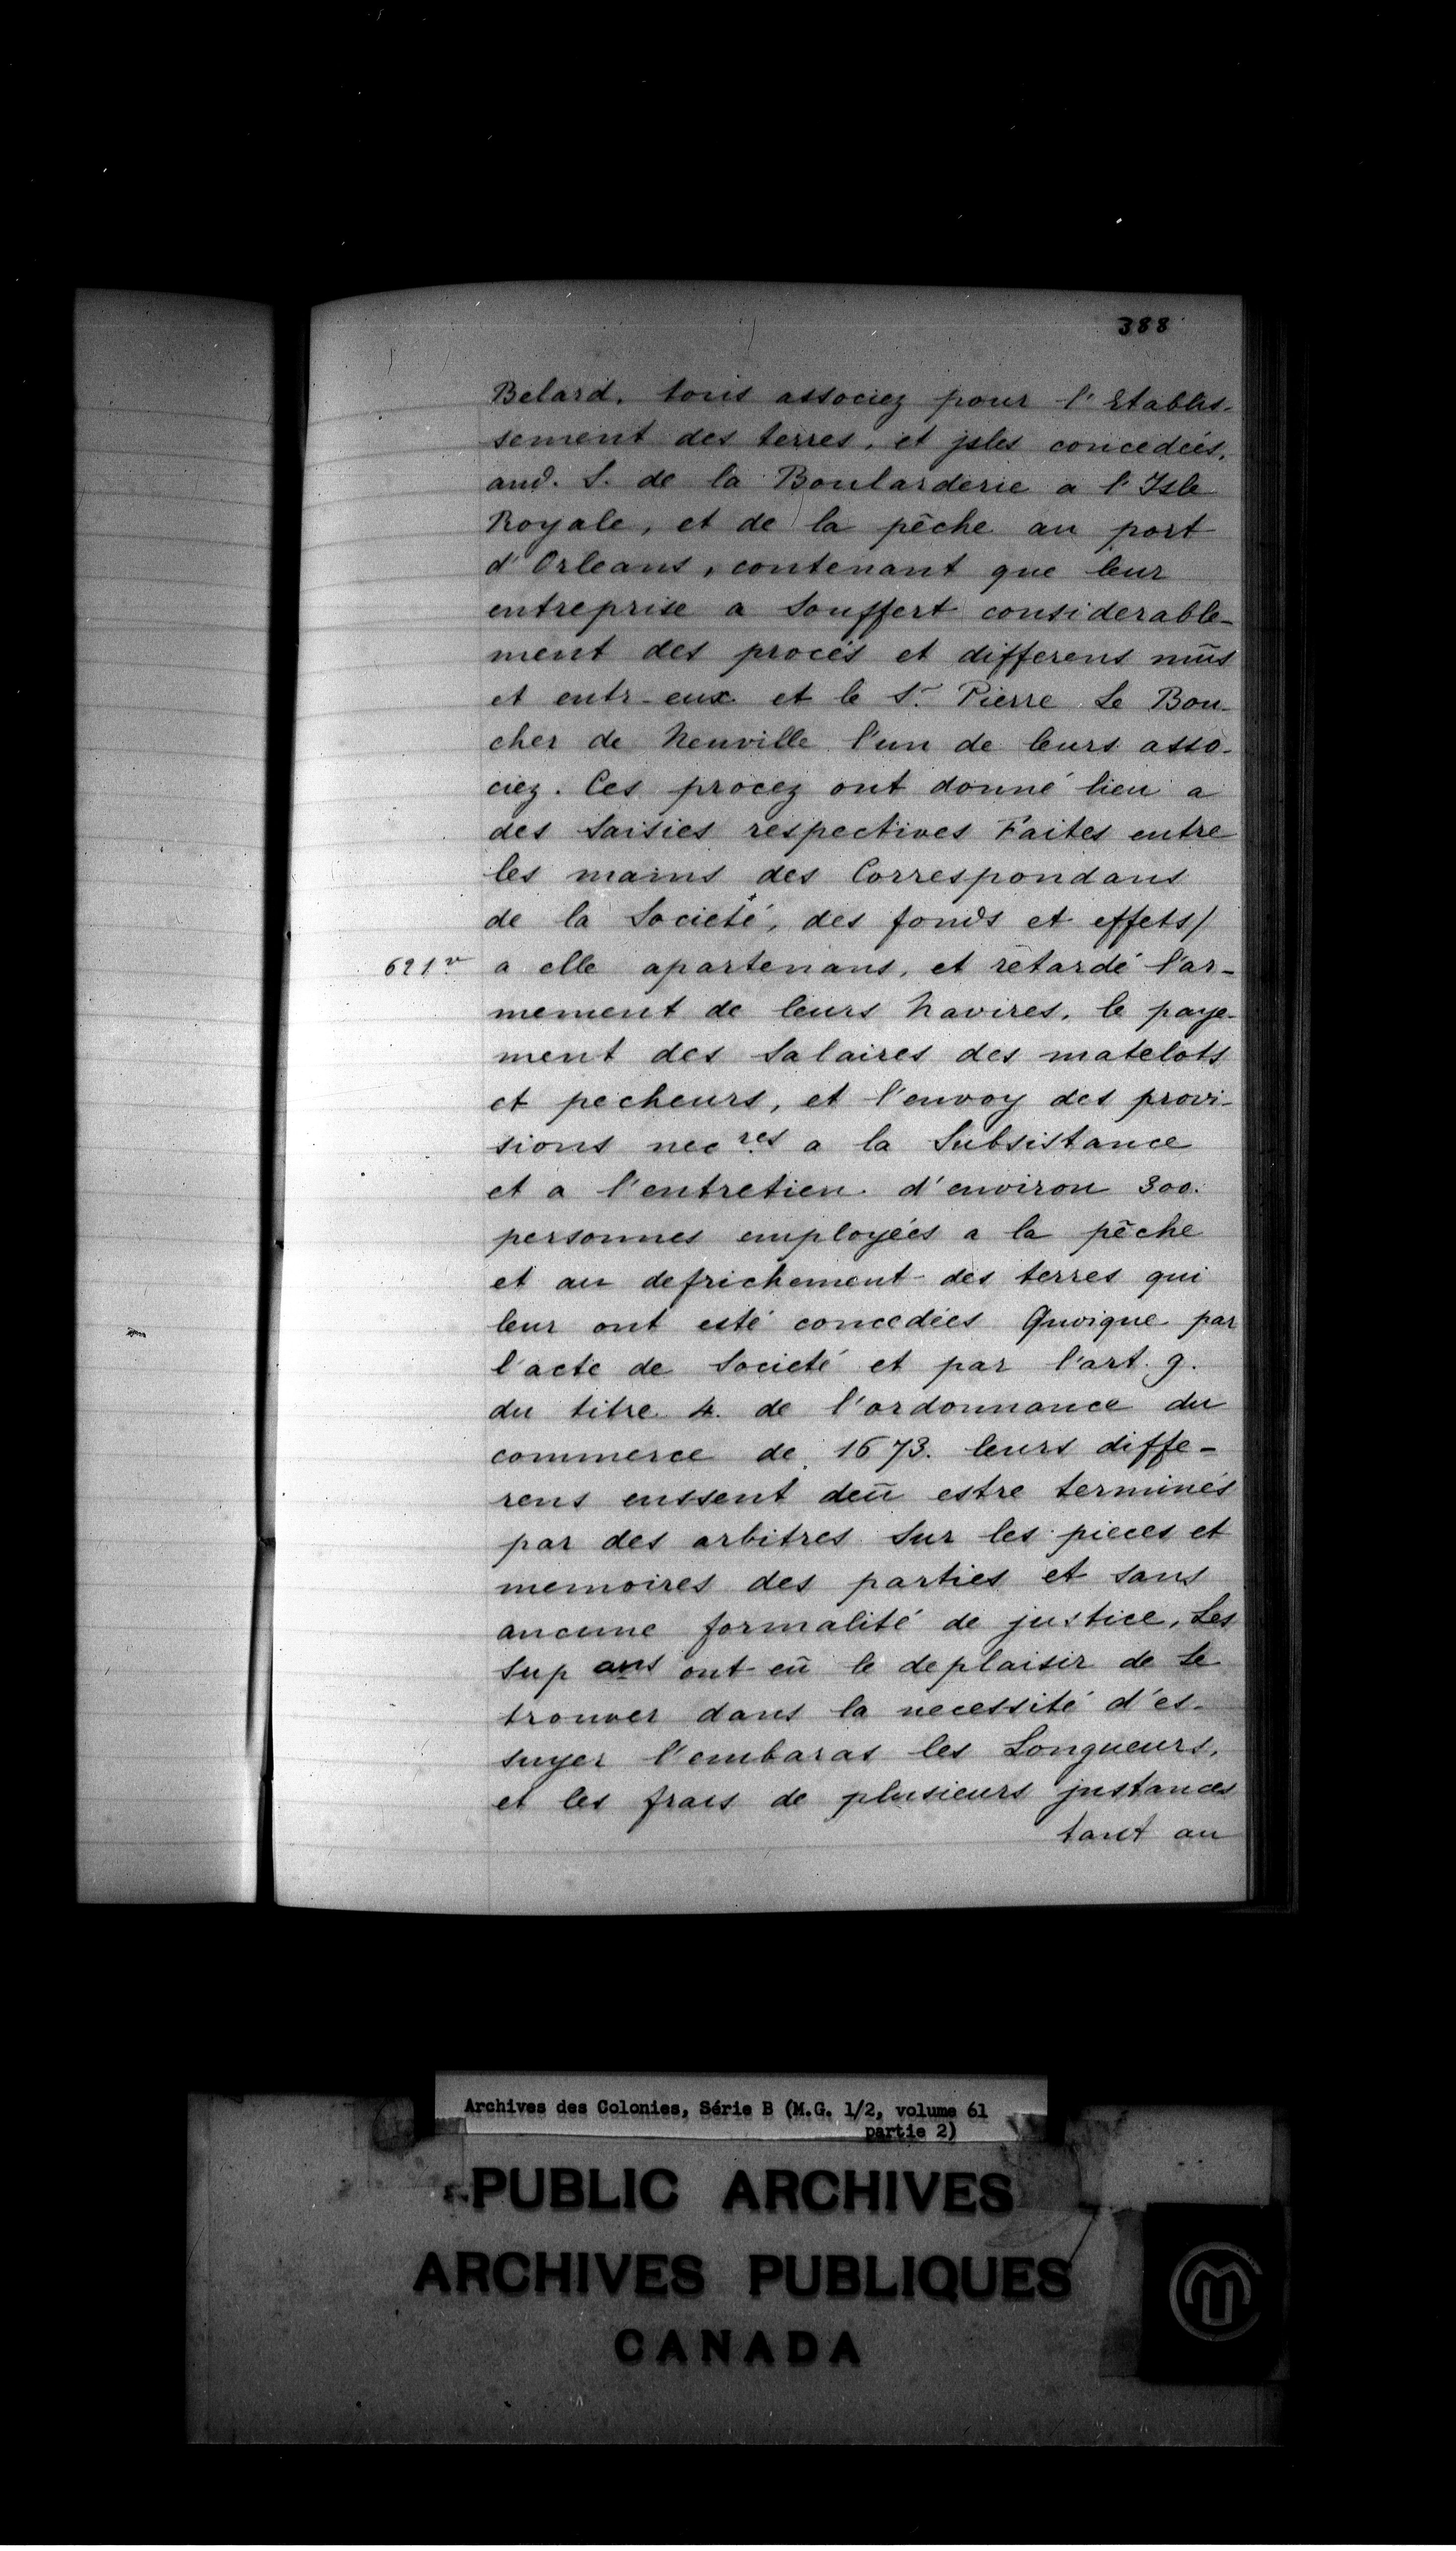 388
Belard. tous associez pour l'Etablis-
sement des terres, et jsles concedéés,
aud. S. de la Boularderie a l'Isle
Royale, et de la pêche au port
d'Orleans, contenant que leur
entreprise a Souffert considerable-
ment des procés et differens mûs
et entr-eux et le Sr. Pierre Le Bou-
cher de Neuville l'un de leurs asso-
ciez. Ces procez ont donné lieu a
des Saisies respectives Faites entre
les mains des Correspondans
de la Societé, des fonds et effets/
621v a elle apartenans, et retardé l'ar-
mement de leurs Navires, le paye-
ment des Salaires des matelots
et pecheurs, et l'envoy des provi-
sions necres a la Subsistance
et a l'entretien d'environ 300.
personnes employéés a la pêche
et au defrichement des terres qui
leur ont esté concedéés Quoique par
l'acte de Societé et par l'art. 9.
du titre 4. de l'ordonnance du
commerce de 1673. leurs diffe-
rens eussent deû estre terminés
par des arbitres Sur les pieces et
memoires des parties et sans
aucune formalité de justice, Les
Sup ans ont eû le deplaisir de Se
trouver dans la necessité d'es-
suyer l'embaras les Longueurs,
et les frais de plusieurs jnstances
tant au
Archives des Colonies, Série B (M.G. 1/2, volume 61
partie 2)
PUBLIC ARCHIVES
ARCHIVES PUBLIQUES
CANADA